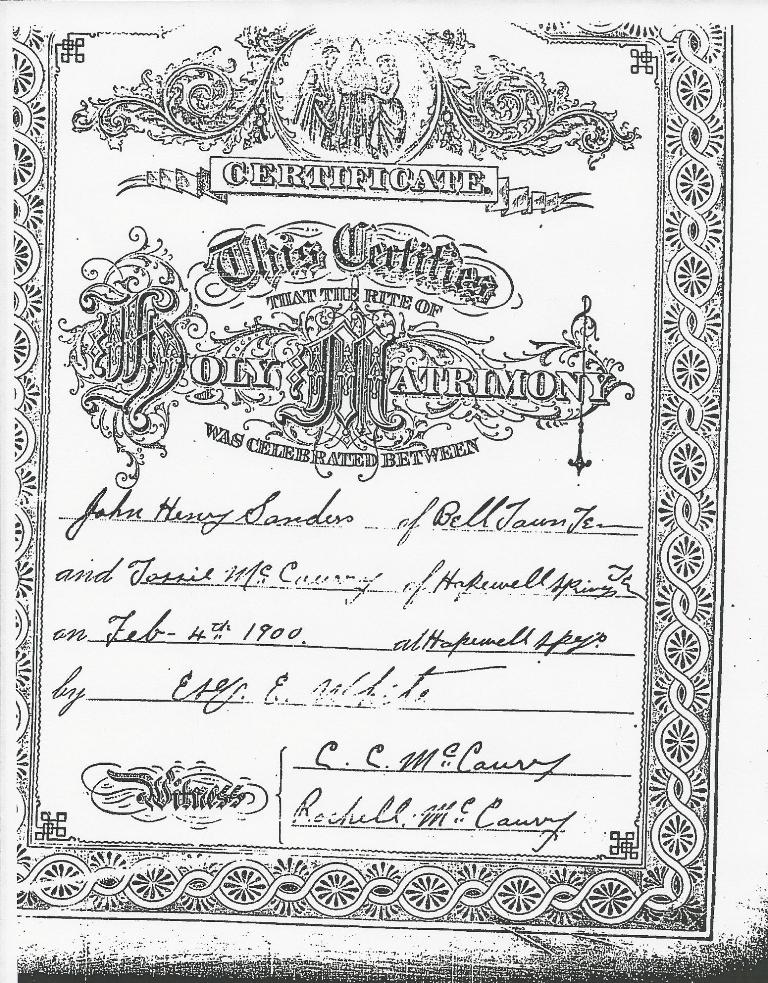 CERTIFICATE.
This Certifies
THAT THE RITE OF
HOLY MATRIMONY
WAS CELEBRATED BETWEEN
John Henry Sanders of Bell Town Te
and Tossie Mc Caury of Hopewell Spring Te
on Feb - 4th 1900. at Hopewell Spgs.
by Esq. E. White
Witness
C. C. Mc Caury
Rachell. Mc Caury